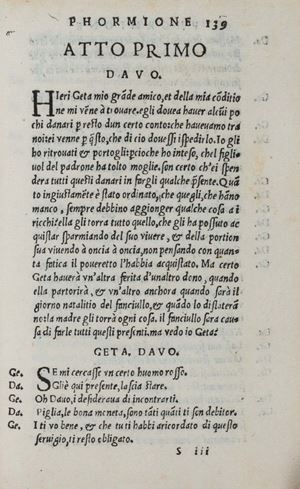 PHORMIONE 139
ATTO PRIMO
DAVO.
HIeri Geta mio grāde amico, et della mia cōditio
ne mi vēne à trouare. egli douea hauer alcūi po
chi danari p resto dun certo conto: che haueuamo tra
noi: et venne p q̄sto, che di cio douessi ispedirlo. Io gli
ho ritrouati & portogli: pcioche ho inteso, chel figliuo
uol del padrone ha tolto moglie. son certo ch'ei spen
dera tutti questi danari in fargli qualche p̄sente. Quā
to ingiustamēte è stato ordinato, che quegli, che hāno
manco, sempre debbino aggionger qualche cosa a i
ricchi! ella gli torra tutto quello, che gli ha possuto ac
quistar sparmiando del suo viuere, & della portion
sua viuendo à oncia à oncia, non pensando con quan
ta fatica il poueretto l'habbia acquistato. Ma certo
Geta hauerà vn'altra ferita d'unaltro dono, quando
ella partorirà, & vn'altra anchora quando sarà il
giorno natalitio del fanciullo, & quādo lo dislaterà
no: la madre gli torrà ogni cosa. il fanciullo sara cau
sa di farle tutti questi presenti. ma vedo io Geta?
GETA. DAVO.
Ge. SE mi cercasse vn certo huomo rosso.
Da. Gliè qui presente, lascia stare.
Ge. Oh Dauo, i desideraua di incontrarti.
Da. Piglia, le bona moneta, sono tāti quāti ti son debitor.
Ge. I ti vo bene, & che tu habbi aricordato di questo
seruigio, ti resto obligato.
S iii